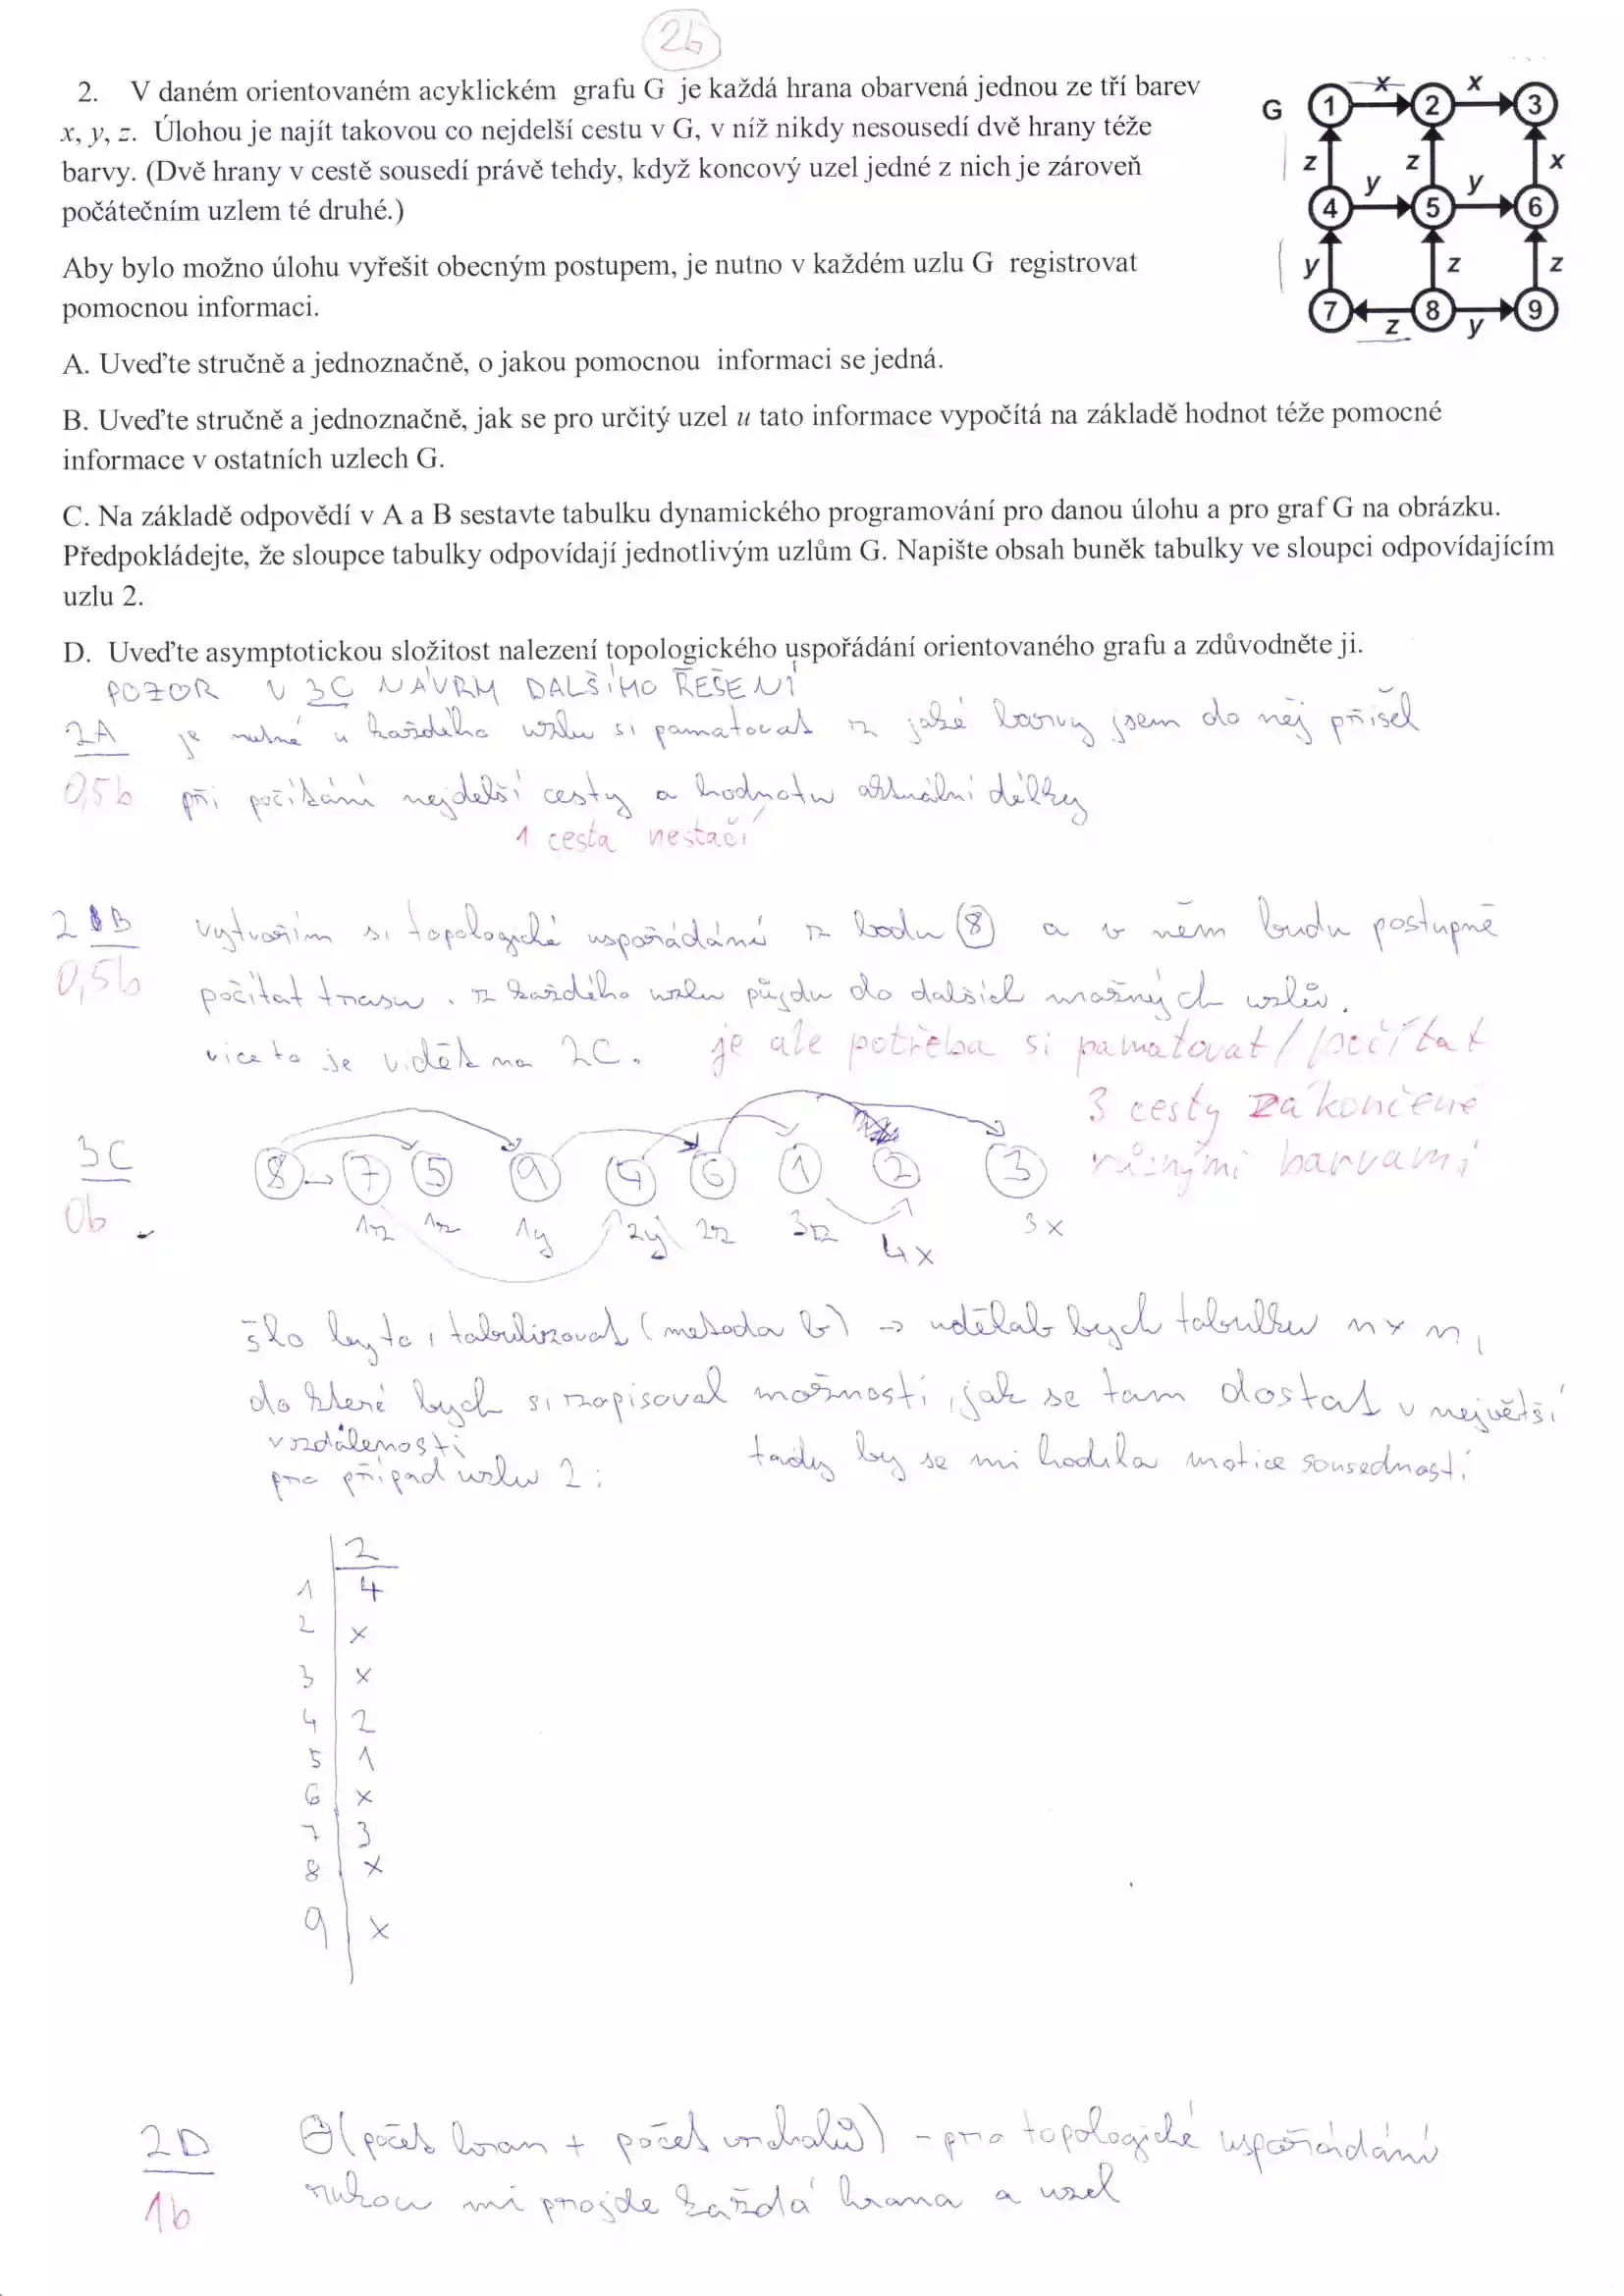 2b
2. V daném orientovaném acyklickém grafu G je každá hrana obarvená jednou ze tří barev
x, y, z. Úlohou je najít takovou co nejdelší cestu v G, v níž nikdy nesousedí dvě hrany téže
barvy. (Dvě hrany v cestě sousedí právě tehdy, když koncový uzel jedné z nich je zároveň
počátečním uzlem té druhé.)
G 1 x 2 x 3
z z x
4 y 5 y 6
y z z
7 z 8 y 9
Aby bylo možno úlohu vyřešit obecným postupem, je nutno v každém uzlu G registrovat
pomocnou informaci.
A. Uveďte stručně a jednoznačně, o jakou pomocnou informaci se jedná.
B. Uveďte stručně a jednoznačně, jak se pro určitý uzel u tato informace vypočítá na základě hodnot téže pomocné
informace v ostatních uzlech G.
C. Na základě odpovědí v A a B sestavte tabulku dynamického programování pro danou úlohu a pro graf G na obrázku.
Předpokládejte, že sloupce tabulky odpovídají jednotlivým uzlům G. Napište obsah buněk tabulky ve sloupci odpovídajícím
uzlu 2.
D. Uveďte asymptotickou složitost nalezení topologického uspořádání orientovaného grafu a zdůvodněte ji.
POZOR V 3C NÁVRH DALŠÍHO ŘEŠENÍ
2A je nutné u každého uzlu si pamatovat z jaké barvy jsem do něj přišel
0,5b při počítání nejdelší cesty a hodnotu aktuální délky
1 cesta nestačí
2B vytvořím si topologické uspořádání z bodu 8 a v něm budu postupně
0,5b počítat trasu. z každého uzlu půjdu do dalších možných uzlů.
více to je vidět na 2C. je ale potřeba si pamatovat/počítat
3 cesty zakončené
různými barvami
3C 8 7 5 9 4 6 1 2 3
0b 1z 1z 1y 2y 2z 3z 4x 3x
šlo by to i tabulizovat (metoda b) → udělal bych tabulku n x n,
do které bych si zapisoval možnosti, jak se tam dostat v největší
vzdálenosti
tady by se mi hodila matice sousednosti
pro případ uzlu 2:
2
1 4
2 x
3 x
4 2
5 1
6 x
7 3
8 x
9 x
2D Θ(počet hran + počet vrcholů) - pro topologické uspořádání
1b rukou mi projde každá hrana a uzel